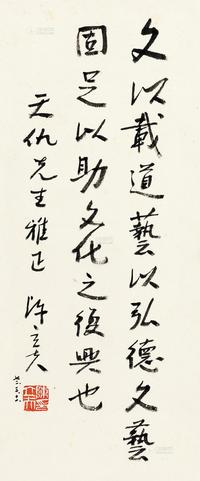 文以載道藝以弘德文藝
固足以助文化之復興也
天仇先生雅正